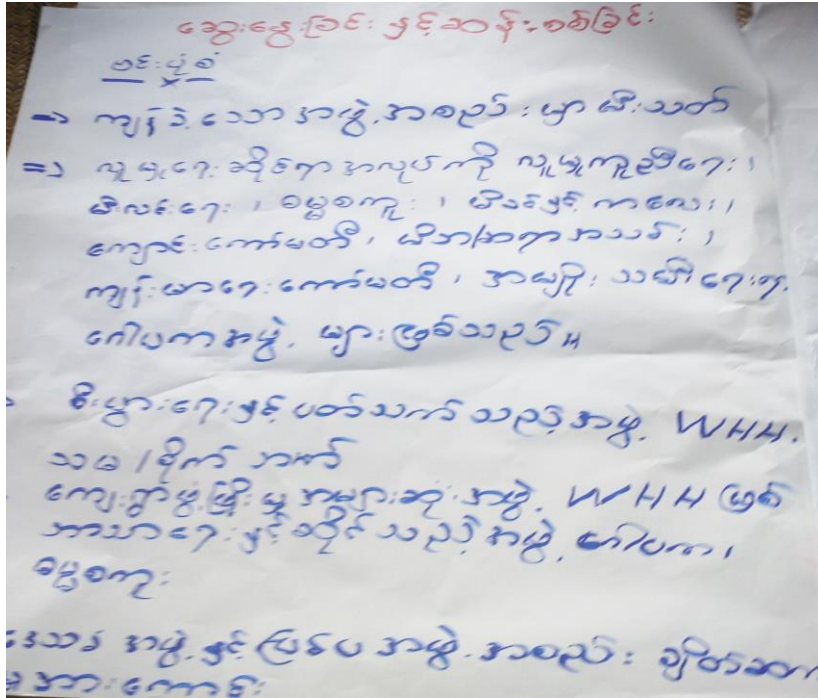 ဆွေးနွေးခြင်း နှင့် ဆန်းစစ်ခြင်း
ဗင်းပုံစံ
→ ကျန်ခဲ့သော အဖွဲ့အစည်း မှာ မီးသတ်
⇒ လူမှုရေးဆိုင်ရာအလုပ်ကို လူမှုကူညီရေး၊
မီးလင်းရေး၊ ဓမ္မစကူး၊ မိခင်နှင့် ကလေး၊
ကျောင်းကော်မတီ၊ မိဘ/ဆရာအသင်း၊
ကျန်းမာရေးကော်မတီ၊ အမျိုးသမီးရေးရာ
ဂေါပကအဖွဲ့ များဖြစ်သည်။
စီးပွားရေးနှင့်ပတ်သက်သည့်အဖွဲ့ WHH.
သမ/စိုက် ဘဏ်
ကျေးရွာဖွံ့ဖြိုးမှု အများဆုံးအဖွဲ့ WHH ဖြစ်
ဘာသာရေးနှင့်ဆိုင်သည့်အဖွဲ့ ဂေါပက၊
ဓမ္မစကူး
ဒေသခံ အဖွဲ့ နှင့် ပြင်ပ အဖွဲ့အစည်း ချိတ်ဆက်
မှု အားကောင်း